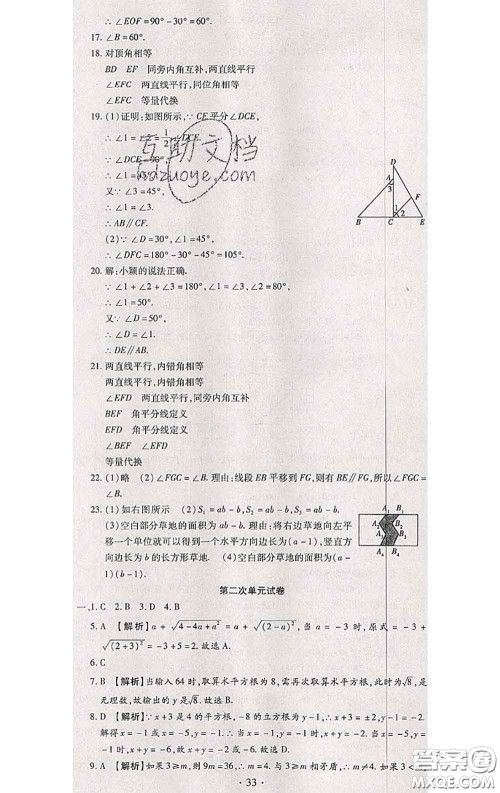 ∴ ∠EOF=90°-30°=60°.
17. ∠B=60°.
18. 对顶角相等
BD EF 同旁内角互补,两直线平行
∠EFC 两直线平行,同位角相等
∠EFC 等量代换
19. (1)证明:如图所示,∵ CF平分∠DCE,
∴ ∠1=∠2=1/2∠DCE.
∵ ∠DCE=90°,
∴ ∠1=45°.
又∵ ∠3=45°,
∴ ∠1=∠3.
∴ AB∥CF.
(2)∵ ∠D=30°,∠1=45°,
∴ ∠DFC=180°-30°-45°=105°.
20. 解:小颖的说法正确.
∵ ∠1+∠2+∠3=180°,
∴ ∠1=50°.
又∵ ∠D=50°,
∴ ∠D=∠1.
∴ DE∥AB.
21. 两直线平行,内错角相等
两直线平行,内错角相等
∠EFD 两直线平行,同旁内角互补
BEF 角平分线定义
∠EFD 角平分线定义
∠BEF ∠EFD
等量代换
22. (1)略 (2)∠FGC=∠B. 理由:线段EB平移到FG,则有BE∥FG,所以∠FGC=
∠B.
23. (1)如右图所示 (2)S₁=ab-b,S₂=ab-b,S₃=ab-b.
(3)空白部分草地的面积为ab-b. 理由:将右边草地向左平
移一个单位就可以得到一个水平方向边长为(a-1),竖直方
向边长为b的长方形草地. (4)空白部分草地的面积为(a-
1)(b-1).
第二次单元试卷
一、1. C 2. B 3. D 4. B
5. A 【解析】a+√(4-4a+a²)=a+√((2-a)²),当a=-3时,原式=-3+
√((2+3)²)=-3+5=2. 故选A.
6. C
7. B 【解析】当输入64时,取算术平方根为8,需再次取算术平方根,此时为√8,是
无理数,故输出的y是√8. 故选B.
8. D 【解析】∵x+3是4的平方根,-8的立方根为y-1,∴x+3=±2,y-1=-2.
解得x=-1或x=-5,y=-1. 当x=-1,y=-1时,x+y=-2;当x=-5,y=-
1时,x+y=-6. 故选D.
9. A 【解析】如果3≥m,则9m=36,∴m=4. m=4与3≥m相矛盾,∴m≠4. 如果3<
· 33 ·
D
A
3
F
1
2
B
C
E
A₁
B₁
A₂
B₂
A₃
B₃
A₄
B₄
互助文档